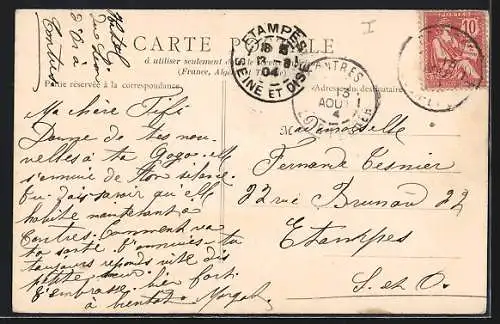 Hôtel
du Lion
d'Or à
Contres
CARTE POSTALE
à utiliser seulement dans le
(France, Algérie
Partie réservée à la correspondance.
Adresse du destinataire
ETAMPES
13 -8
04
SEINE ET OISE
CONTRES
13
AOUT
4
10
Ma chère Fifi
Donne de tes nou-
velles à ta Gogo. elle
s'ennuie de ton silence.
tu dois savoir qu'elle
habite maintenant à
Contres. Comment va
ta santé. T'ennuies-tu
toujours réponds vite dis
petite sœur. bien fort
t'embrasse.
à bientôt Margot
Mademoiselle
Fernande Tesnier
22 rue Brunard 22
Etampes
S. et O.